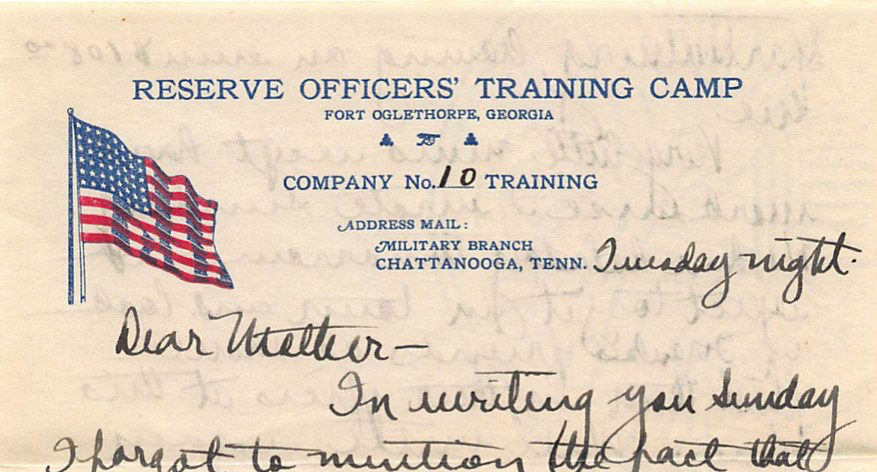 RESERVE OFFICERS' TRAINING CAMP
FORT OGLETHORPE, GEORGIA
COMPANY No. 10 TRAINING
ADDRESS MAIL:
MILITARY BRANCH
CHATTANOOGA, TENN. Tuesday night.
Dear Mother—
In writing you Sunday
I forgot to mention the fact that